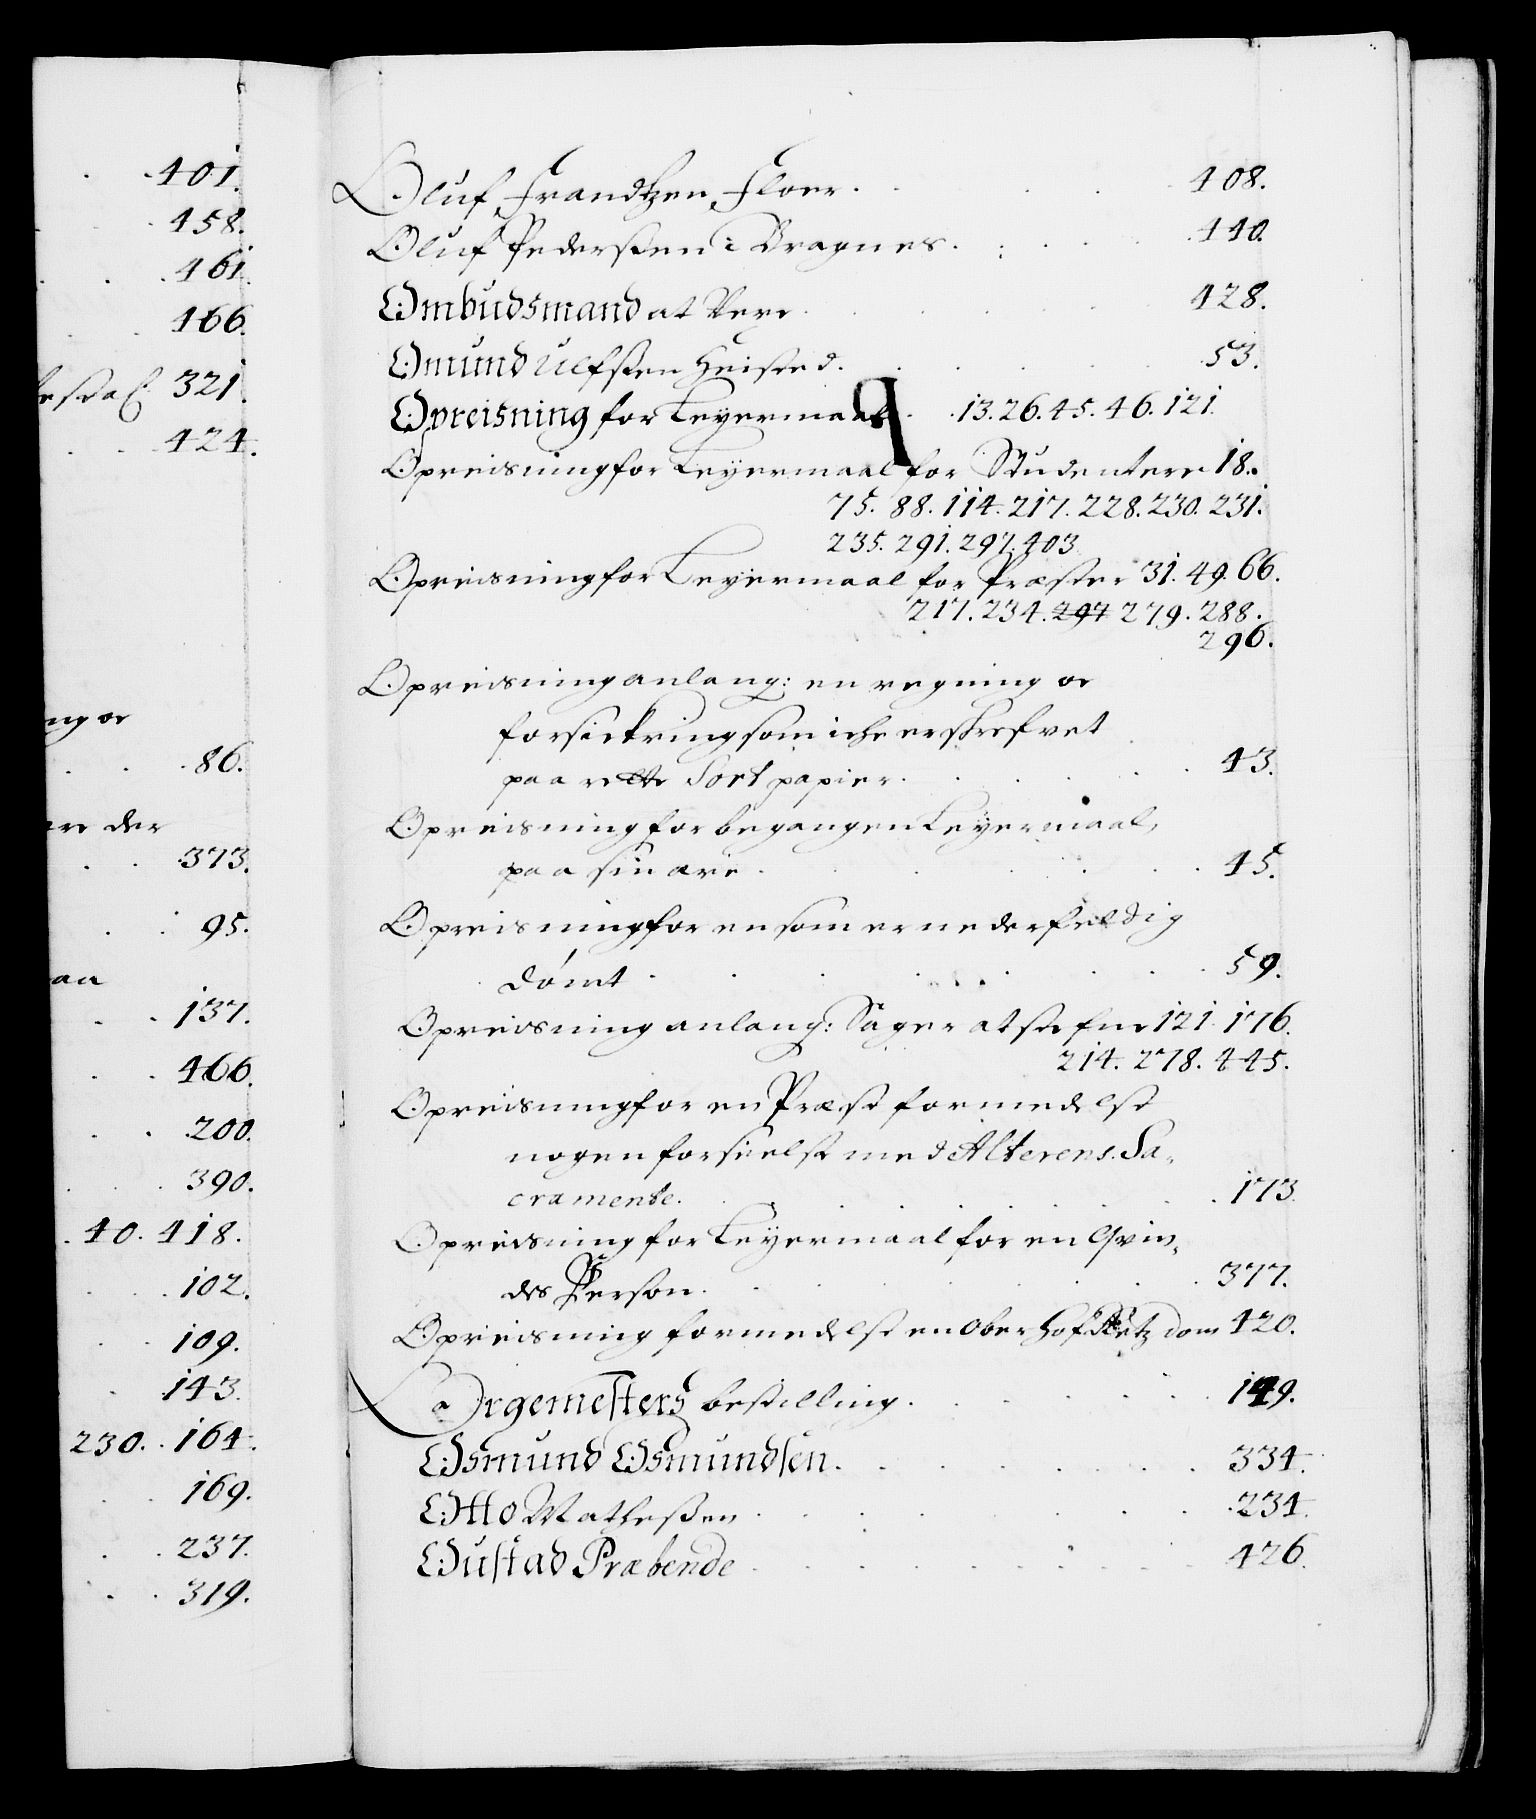 401.
458.
461.
466.
321.
424.
ng oc
86.
der
373.
95.
paa
137.
466.
200.
390.
40. 418.
102.
109.
143.
230. 164.
169.
237.
319.
Oluf Frandtzen Floer. 408.
Oluf Pederssen i Bragnes. 440.
Ombudsmand at vere. 428.
Omund Ulfssen Heisted. 53.
Opreisning for Leyermaal. 13. 26. 45. 46. 121.
Opreisning for Leyermaal for Studentere 18.
75. 88. 114. 217. 228. 230. 231.
235. 291. 297. 403.
Opreisning for Leyermaal for Præster 31. 49. 66.
217. 234. 297 279. 288.
296.
Opreisning anlang: en regning oc
forsickring som iche er skrefvet
paa Sort papier. 43.
Opreisning for begangen Leyermaal,
paa sin ære. 45.
Opreisning for en som er nederfeldig
dömt. 59.
Opreisning anlang: Sager at stefne 121. 176.
214. 278. 445.
Opreisning for en Præst formedelst
nogen forseelse med Alterens Sa-
cramente. 173.
Opreisning for Leyermaal for en Qvin-
des Person. 377.
Opreisning formedelst en Oberhofretz dom 420.
Orgemesters bestilling. 149.
Osmund Osmundsen. 334.
Otto Mathessen. 234.
Oustad Præbende 426.